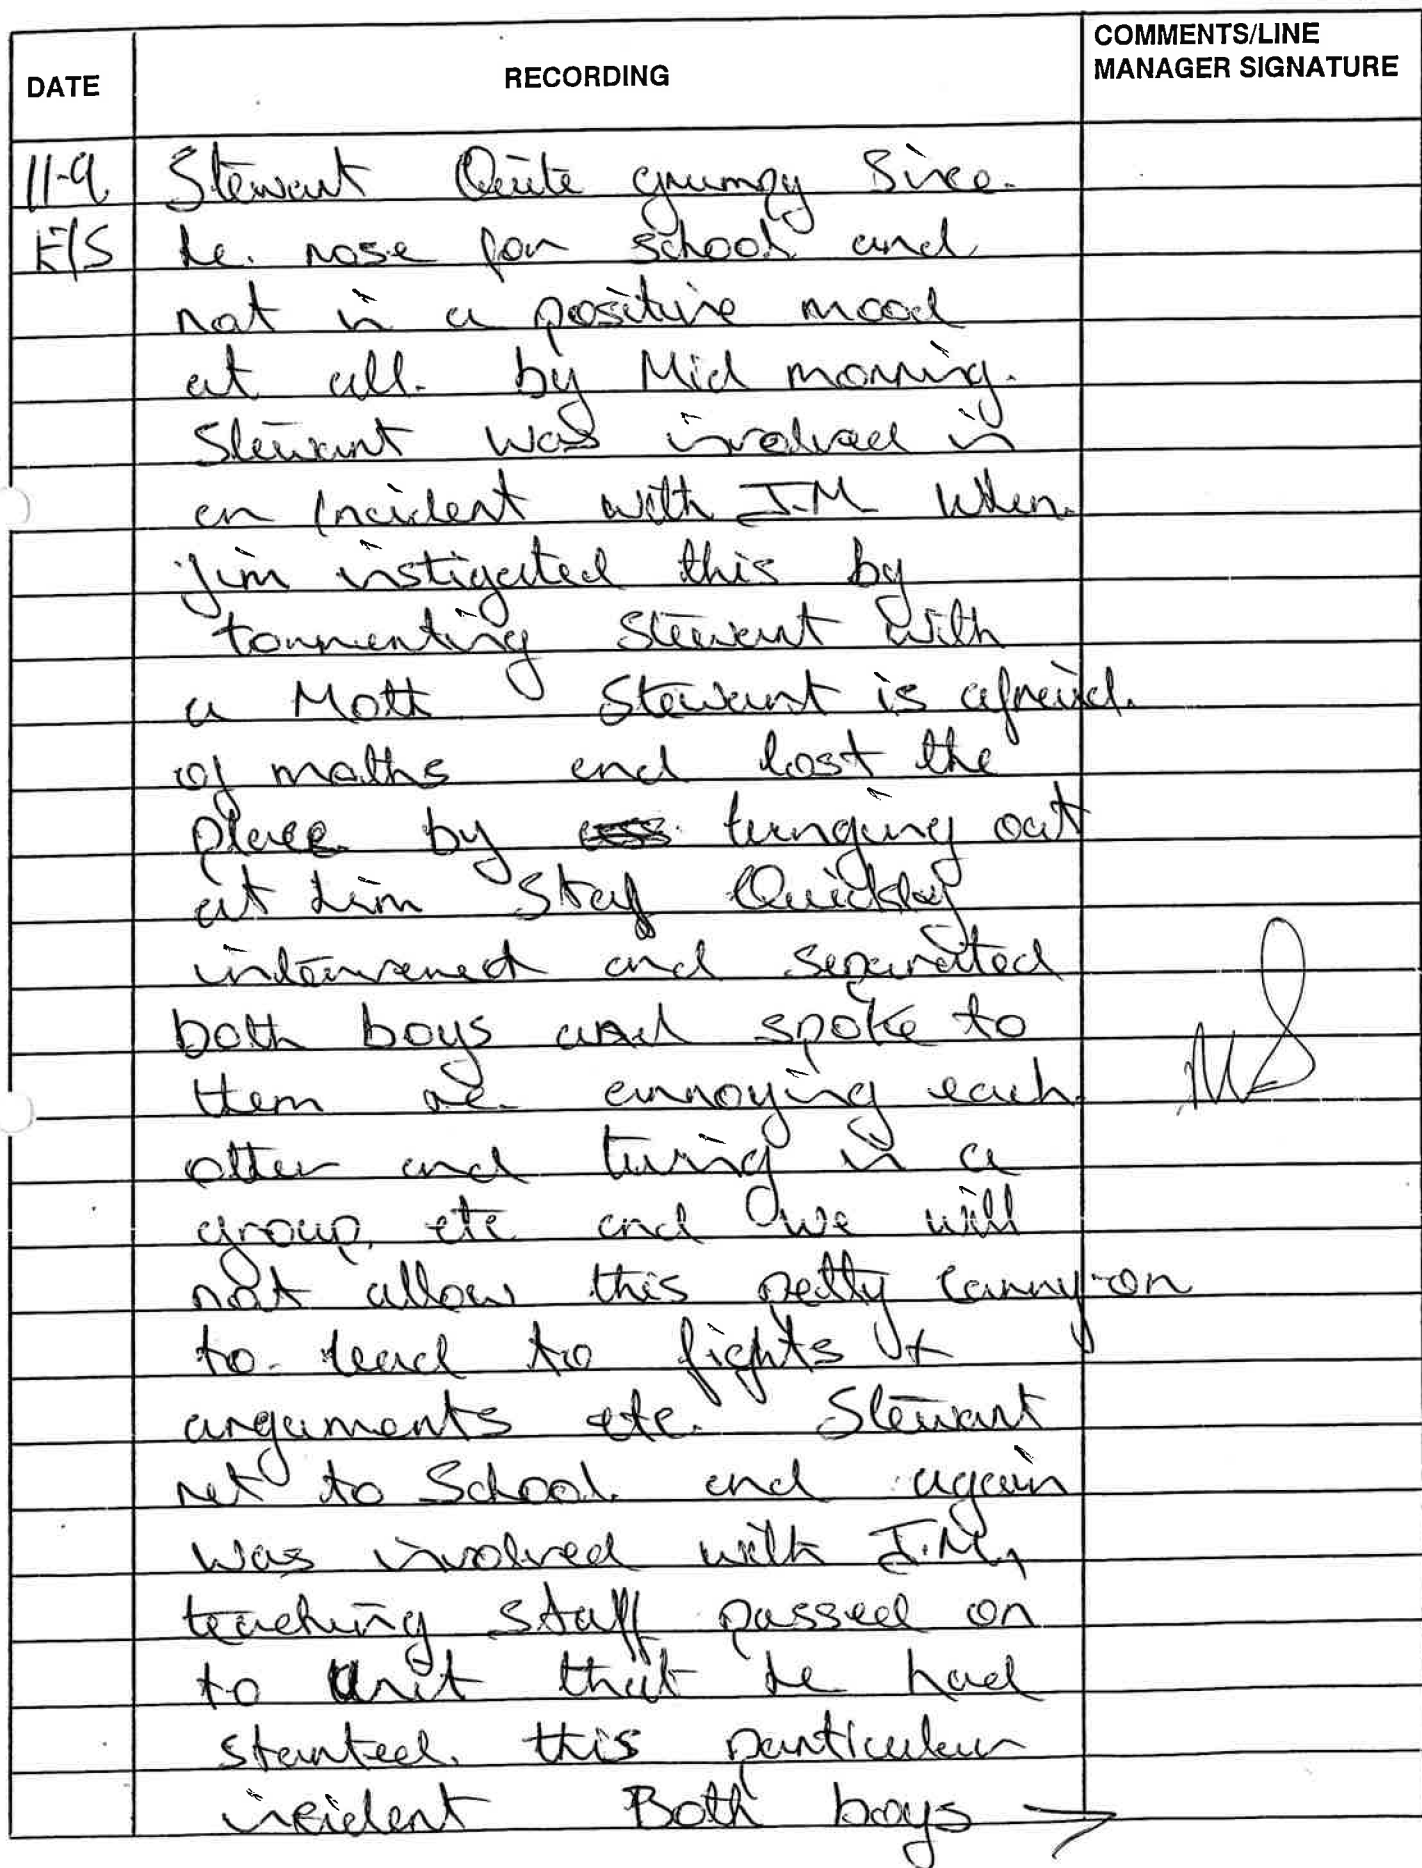 DATE
RECORDING
COMMENTS/LINE
MANAGER SIGNATURE
11-9 Stewart Quite grumpy Since
E/S he rose for school and
not in a positive mood
at all. by Mid morning.
Stewart was involved in
an incident with J.M when
Jim instigated this by
tormenting Stewart with
a Moth Stewart is afraid
of moths and lost the
place by lunging out
at him Staff Quickly
intervened and separated
both boys and spoke to
them re. annoying each
other and living in a
group, etc and we will
not allow this petty carry-on
to lead to fights +
arguments etc. Stewart
ret to School and again
was involved with J.M,
teaching staff passed on
to Unit that he had
started this particular
incident Both boys →